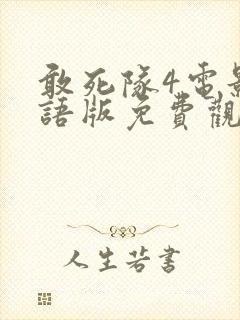 敢死隊4電影
語版免費觀
人生若書